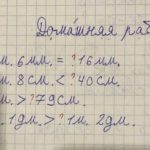 Домашняя раб
м. 6мм. = ?16мм.
м. 8см. < ?40см.
м. > ?79см.
. 1дм. > ?1м. 2дм.